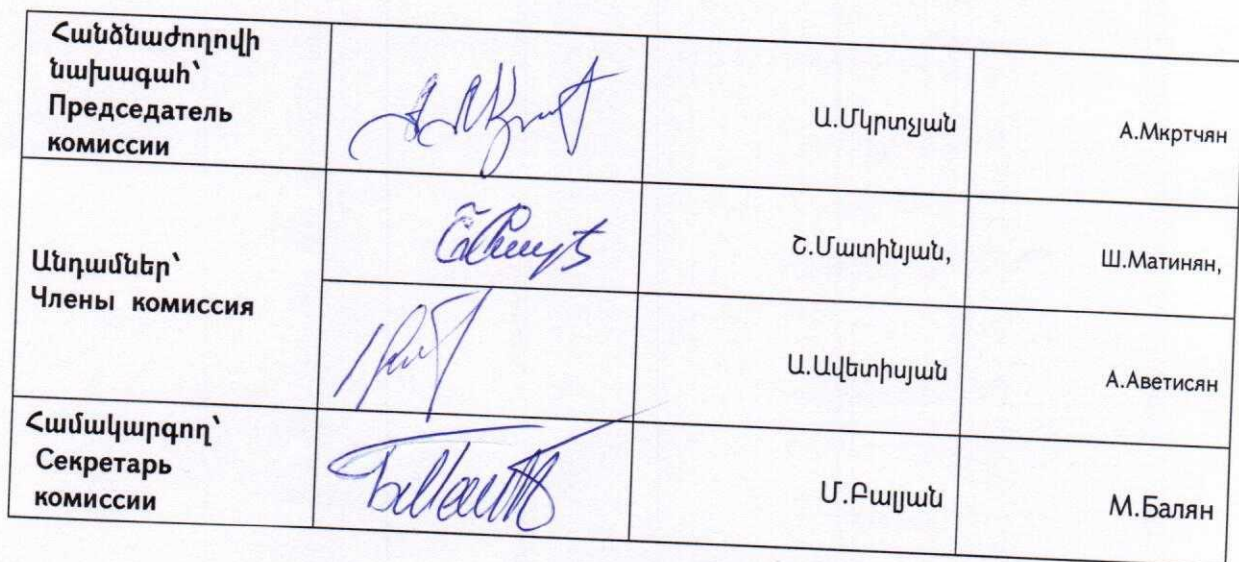 Հանձնաժողովի
նախագահ՝
Председатель
комиссии
Ա.Մկրտչյան
А.Мкртчян
Անդամներ՝
Члены комиссия
Շ.Մատինյան,
Ш.Матинян,
Ա.Ավետիսյան
А.Аветисян
Համակարգող՝
Секретарь
комиссии
Մ.Բալյան
М.Балян